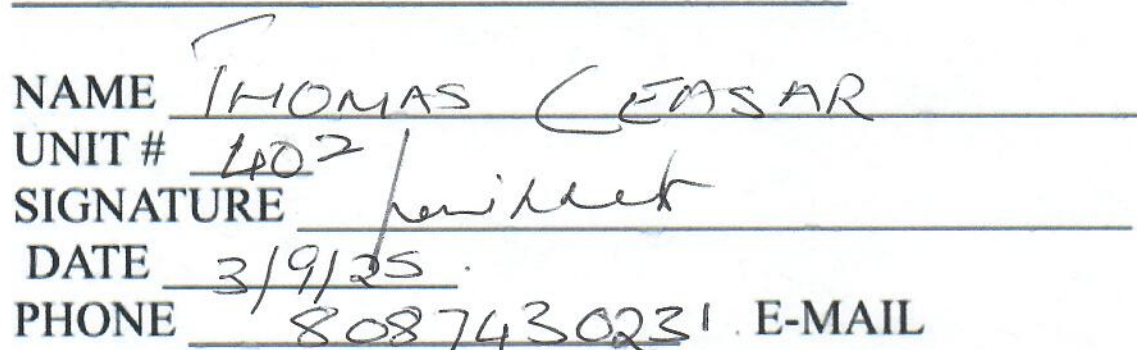 NAME THOMAS CEASAR
UNIT # 402
SIGNATURE
DATE 3/9/25.
PHONE 8087430231. E-MAIL